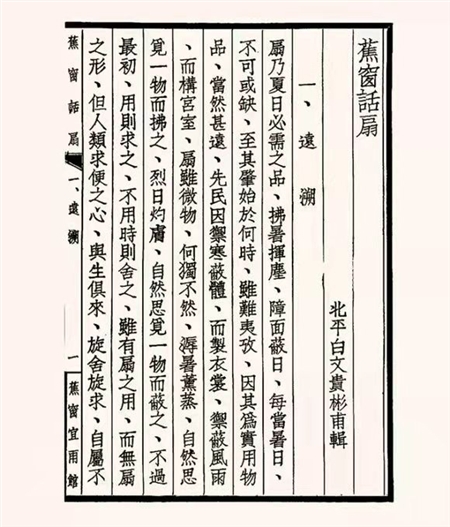 蕉窗話扇
北平白文貴彬甫輯
一、遠溯
扇乃夏日必需之品、拂暑揮塵、障面蔽日、每當暑日、
不可或缺、至其肇始於何時、雖難夷攷、因其爲實用物
品、當然甚遠、先民因禦寒蔽體、而製衣裳、禦蔽風雨
、而構宮室、扇雖微物、何獨不然、溽暑薰蒸、自然思
覓一物而拂之、烈日灼膚、自然思覓一物而蔽之、不過
最初、用則求之、不用時則舍之、雖有扇之用、而無扇
之形、但人類求便之心、與生俱來、旋舍旋求、自屬不
蕉窗話扇
一、遠溯
一
蕉窗宜雨館